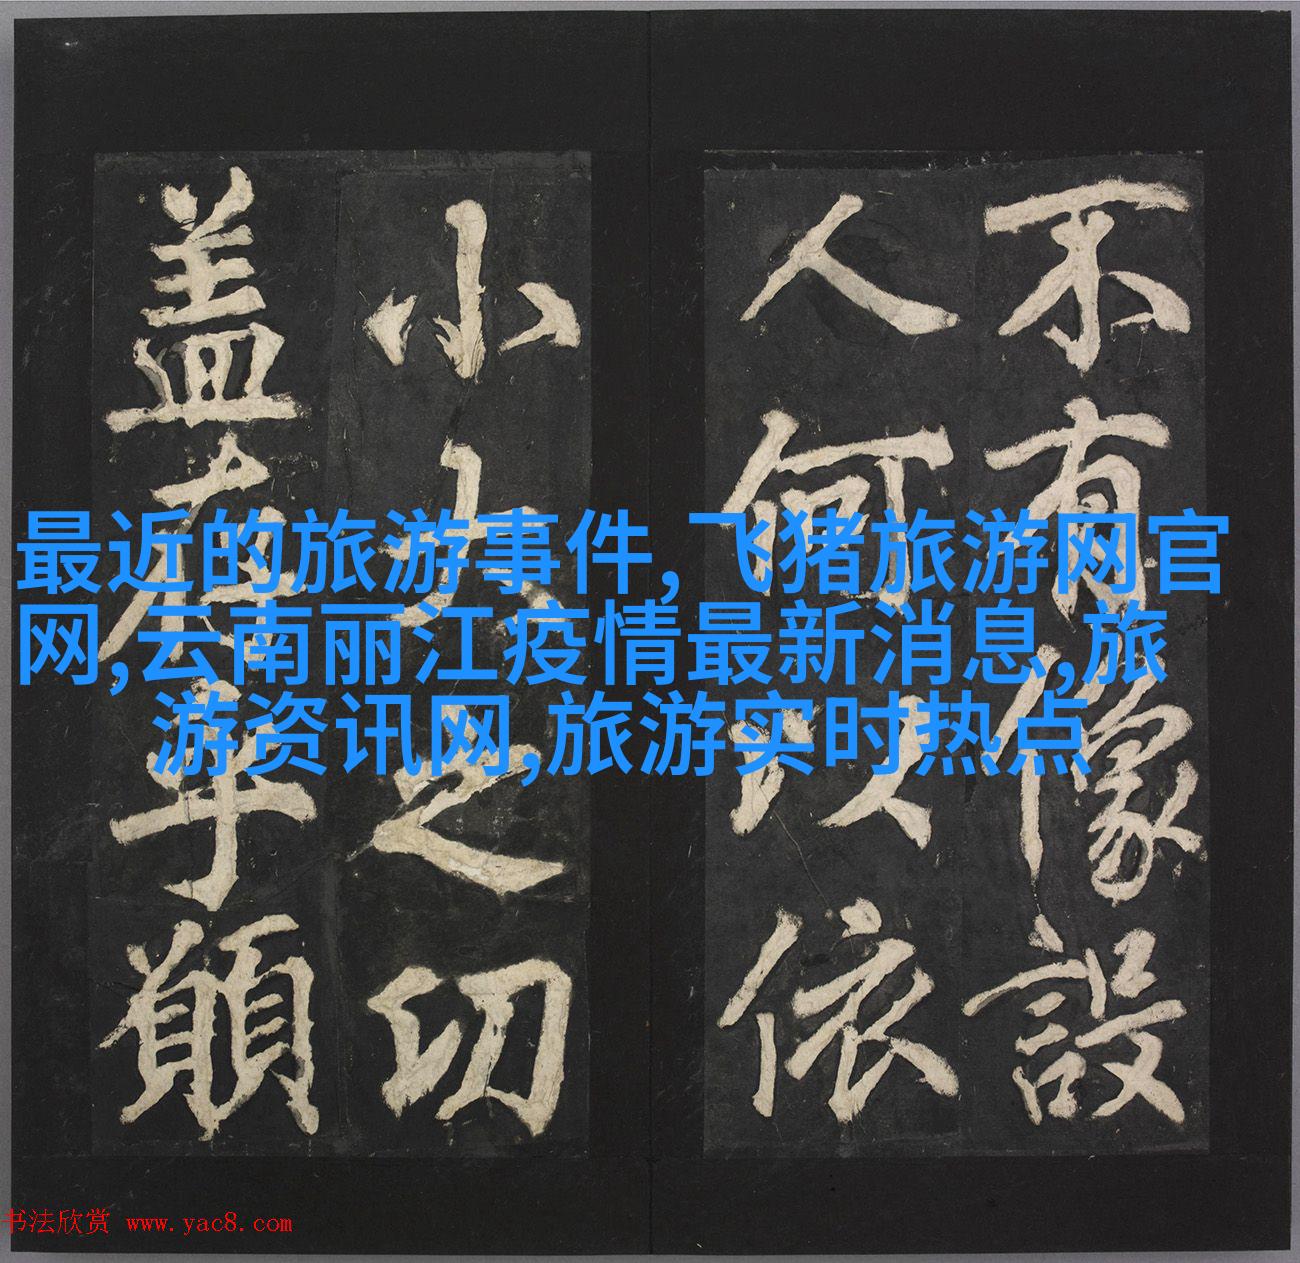 不有像設
人何以依
小大之切
盖在乎願
最近的旅游事件,飞猪旅游网官
网,云南丽江疫情最新消息,旅
游资讯网,旅游实时热点
书法欣赏 www.yac8.com